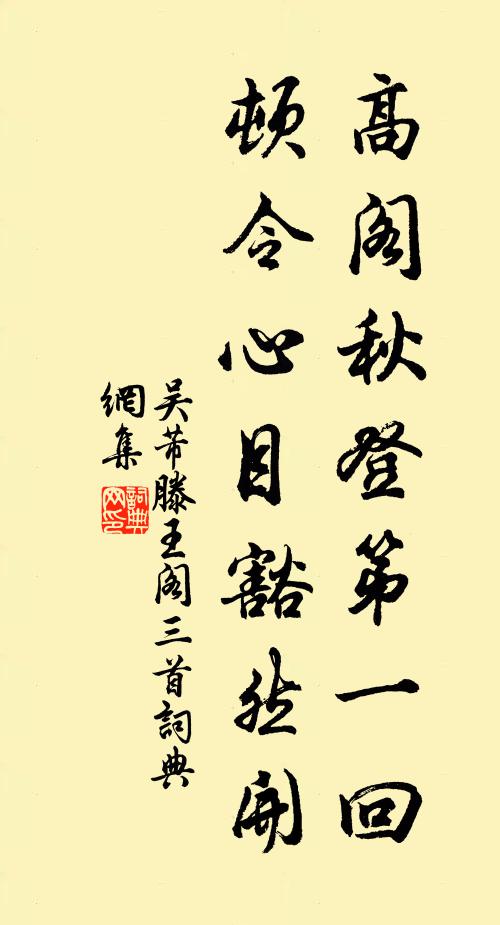 高阁秋登第一回
顿令心目豁然開
吴芾滕王阁三首詞典
網集
詞典
网印